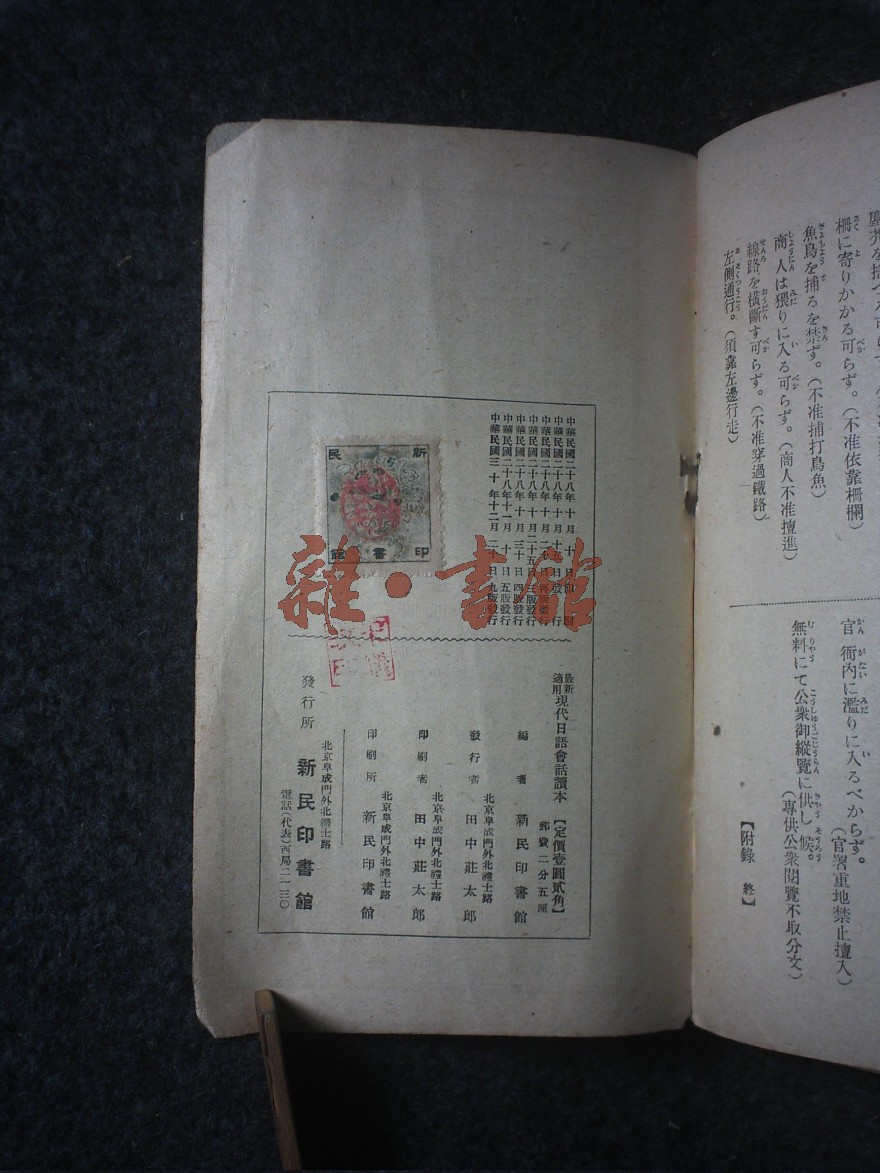 塵芥を捨つる可らず
柵に寄りかかる可らず。(不准依靠柵欄)
魚鳥を捕るを禁ず。(不准捕打鳥魚)
商人は猥りに入る可らず。(商人不准擅進)
線路を橫斷す可らず。(不准穿過鐵路)
左側通行。(須靠左邊行走)
官衙內に濫りに入るべからず。
(官署重地禁止擅入)
無料にて公衆御縱覽に供し候。
(專供公衆閱覽不取分文)
【附錄 終】
中華民國二十八年十月 十 日印 刷
中華民國二十八年十月十五日發 行
中華民國二十八年十月二十日再版發行
中華民國二十八年十月二十五日三版發行
中華民國二十八年十月三十日四版發行
中華民國二十八年十一月 十日五版發行
中華民國三十年十二月二十日九版發行
新民
印書館
雜·書館
最新適用現代日語會話讀本
【定價壹圓貳角】
郵費二分五厘
編者 新民印書館
北京阜成門外北禮士路
發行者 田中莊太郎
北京阜成門外北禮士路
印刷者 田中莊太郎
北京阜成門外北禮士路
印刷所 新民印書館
北京阜成門外北禮士路
發行所 新民印書館
電話(代表)西局二一三〇